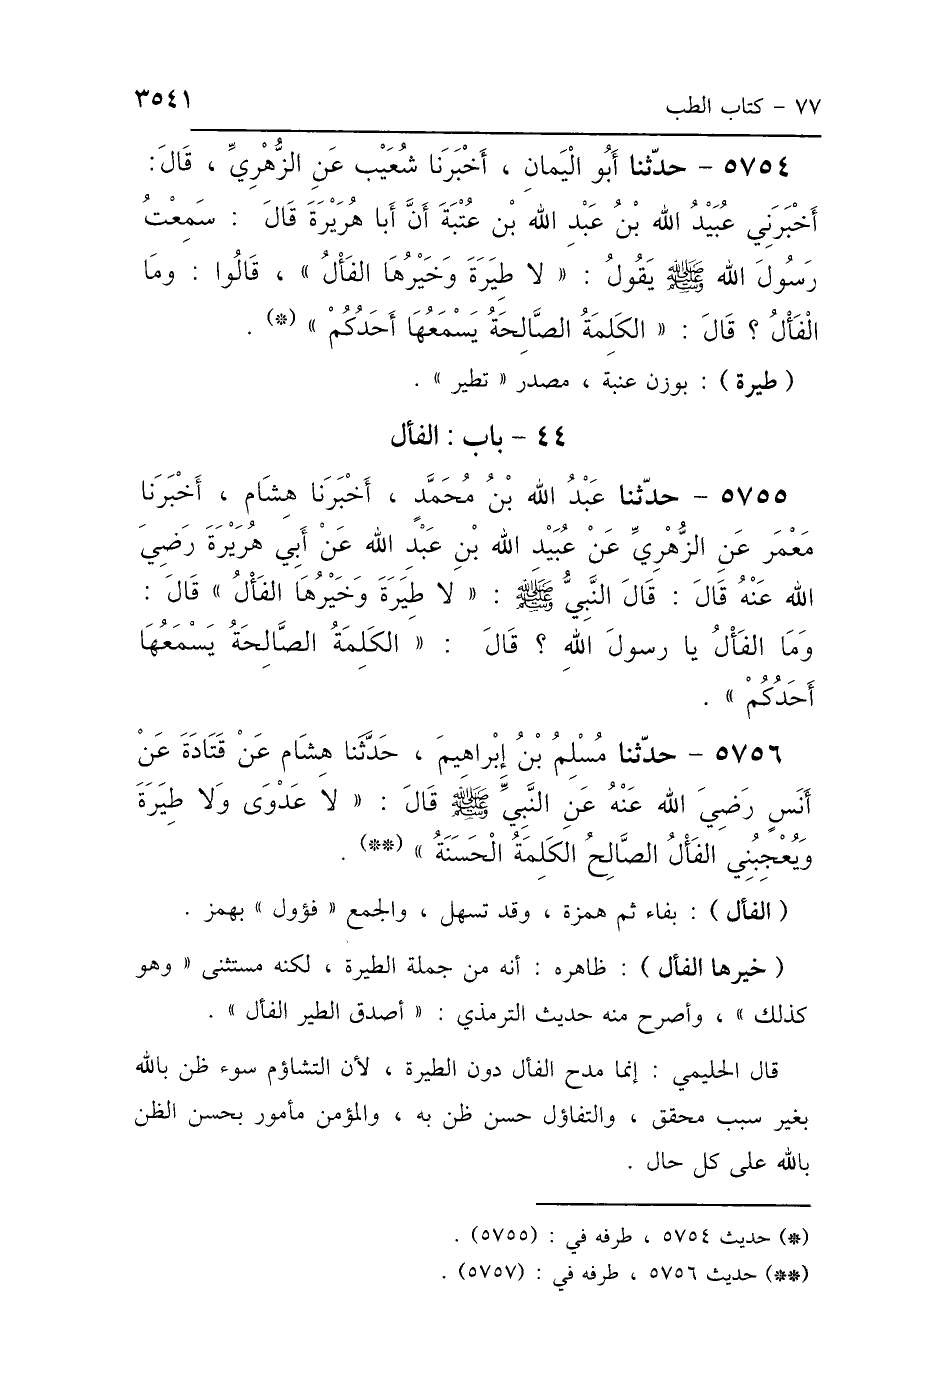 ٧٧ - كتاب الطب ٣٥٤١
٥٧٥٤ - حدّثنا أَبُو الْيَمان ، أَخْبَرَنا شُعَيْب عَنِ الزُّهْرِيِّ ، قَالَ:
أَخْبَرَنِي عُبَيْدُ الله بْنُ عَبْدِ الله بْنِ عُتْبَةَ أَنَّ أَبا هُرَيْرَةَ قَالَ : سَمِعْتُ
رَسُولَ الله ﷺ يَقُولُ : « لا طِيَرَةَ وَخَيْرُهَا الفَأْلُ » ، قَالُوا : ومَا
الْفَأْلُ ؟ قَالَ : « الكَلِمَةُ الصَّالِحَةُ يَسْمَعُهَا أَحَدُكُمْ » (*) .
( طيرة ) : بوزن عنبة ، مصدر « تطير » .
٤٤ - باب : الفأل
٥٧٥٥ - حدّثنا عَبْدُ الله بْنُ مُحَمَّدٍ ، أَخْبَرَنا هِشَام ، أَخْبَرَنا
مَعْمَر عَنِ الزُّهْرِيِّ عَنْ عُبَيْدِ الله بْنِ عَبْدِ الله عَنْ أَبِي هُرَيْرَةَ رَضِيَ
الله عَنْهُ قَالَ : قَالَ النَّبِيُّ ﷺ : « لا طِيَرَةَ وَخَيْرُهَا الفَأْلُ » قَالَ :
وَمَا الفَأْلُ يا رسولَ اللهِ ؟ قَالَ : « الكَلِمَةُ الصَّالِحَةُ يَسْمَعُهَا
أَحَدُكُمْ » .
٥٧٥٦ - حدّثنا مُسْلِمُ بْنُ إِبْراهِيمَ ، حَدَّثَنا هِشَام عَنْ قَتَادَةَ عَنْ
أَنَسٍ رَضِيَ الله عَنْهُ عَنِ النَّبِيِّ ﷺ قَالَ : « لا عَدْوَى وَلا طِيَرَةَ
وَيُعْجِبُنِي الفَأْلُ الصَّالِحُ الكَلِمَةُ الْحَسَنَةُ » (**) .
( الفأل ) : بفاء ثم همزة ، وقد تسهل ، والجمع « فؤول » بهمز .
( خيرها الفأل ) : ظاهره : أنه من جملة الطيرة ، لكنه مستثنى « وهو
كذلك » ، وأصرح منه حديث الترمذي : « أصدق الطير الفأل » .
قال الحليمي : إنما مدح الفأل دون الطيرة ، لأن التشاؤم سوء ظن بالله
بغير سبب محقق ، والتفاؤل حسن ظن به ، والمؤمن مأمور بحسن الظن
بالله على كل حال .
(*) حديث ٥٧٥٤ ، طرفه في : (٥٧٥٥) .
(**) حديث ٥٧٥٦ ، طرفه في : (٥٧٥٧) .